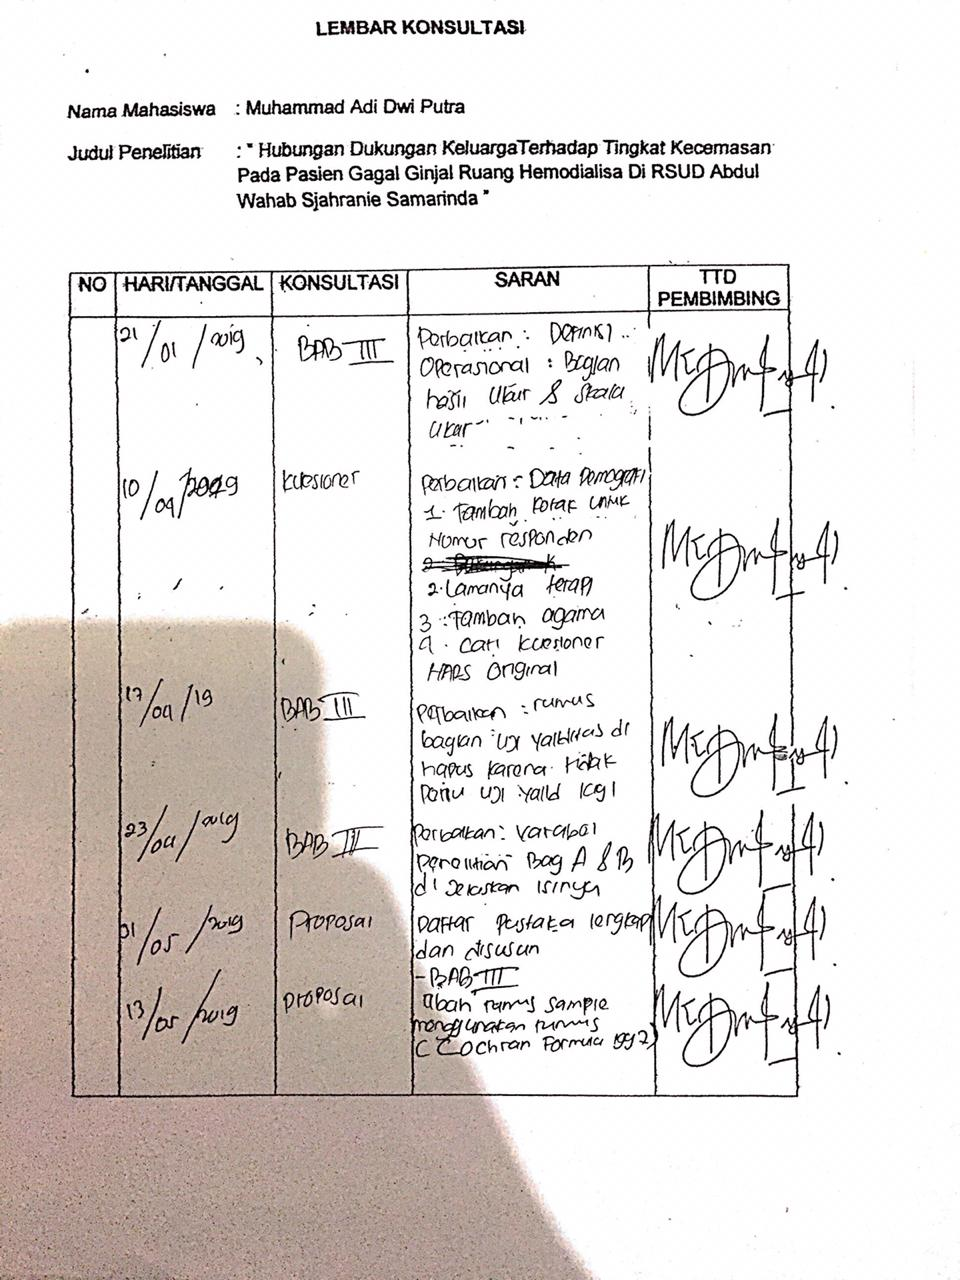 LEMBAR KONSULTASI
Nama Mahasiswa : Muhammad Adi Dwi Putra
Judul Penelitian : " Hubungan Dukungan KeluargaTerhadap Tingkat Kecemasan
Pada Pasien Gagal Ginjal Ruang Hemodialisa Di RSUD Abdul
Wahab Sjahranie Samarinda "
NO HARI/TANGGAL KONSULTASI SARAN TTD
PEMBIMBING
21/01/2019 BAB III Perbaikan : DEFINISI
Operasional : Bagian
hasil Ukur & Skala
Ukur
10/04/2019 kuesioner Perbaikan : Data Demografi
1. Tambah kotak untuk
Nomor responden
2. Lamanya terapi
3. Tambah agama
4. Cari kuesioner
HARS Original
17/04/19 BAB III Perbaikan : rumus
bagian uji validitas di
hapus karena tidak
perlu uji valid lagi
23/04/2019 BAB III Perbaikan : Variabel
Penelitian Bag A & B
di jelaskan isinya
01/05/2019 Proposal Daftar Pustaka lengkap
dan disusun
- BAB III
13/05/2019 proposal Ubah rumus sample
menggunakan rumus
( Cochran Formula 1997)